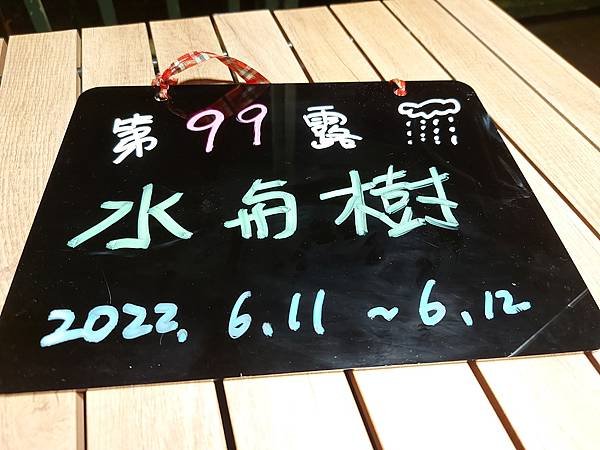 第 99 露
水舟樹
2022. 6.11 ~ 6.12